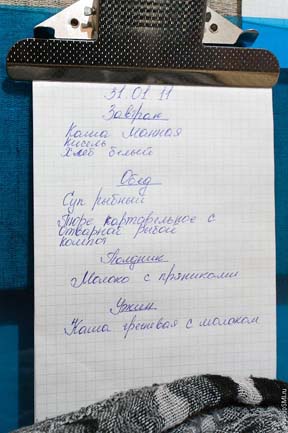 31.01 11
Завтрак
Каша Манная
Кисель
Хлеб белый
Обед
Суп рыбный
Пюре картофельное с
Отварной рыбой
компот
Полдник
Молоко с пряниками
Ужин
Каша гречневая с молоком